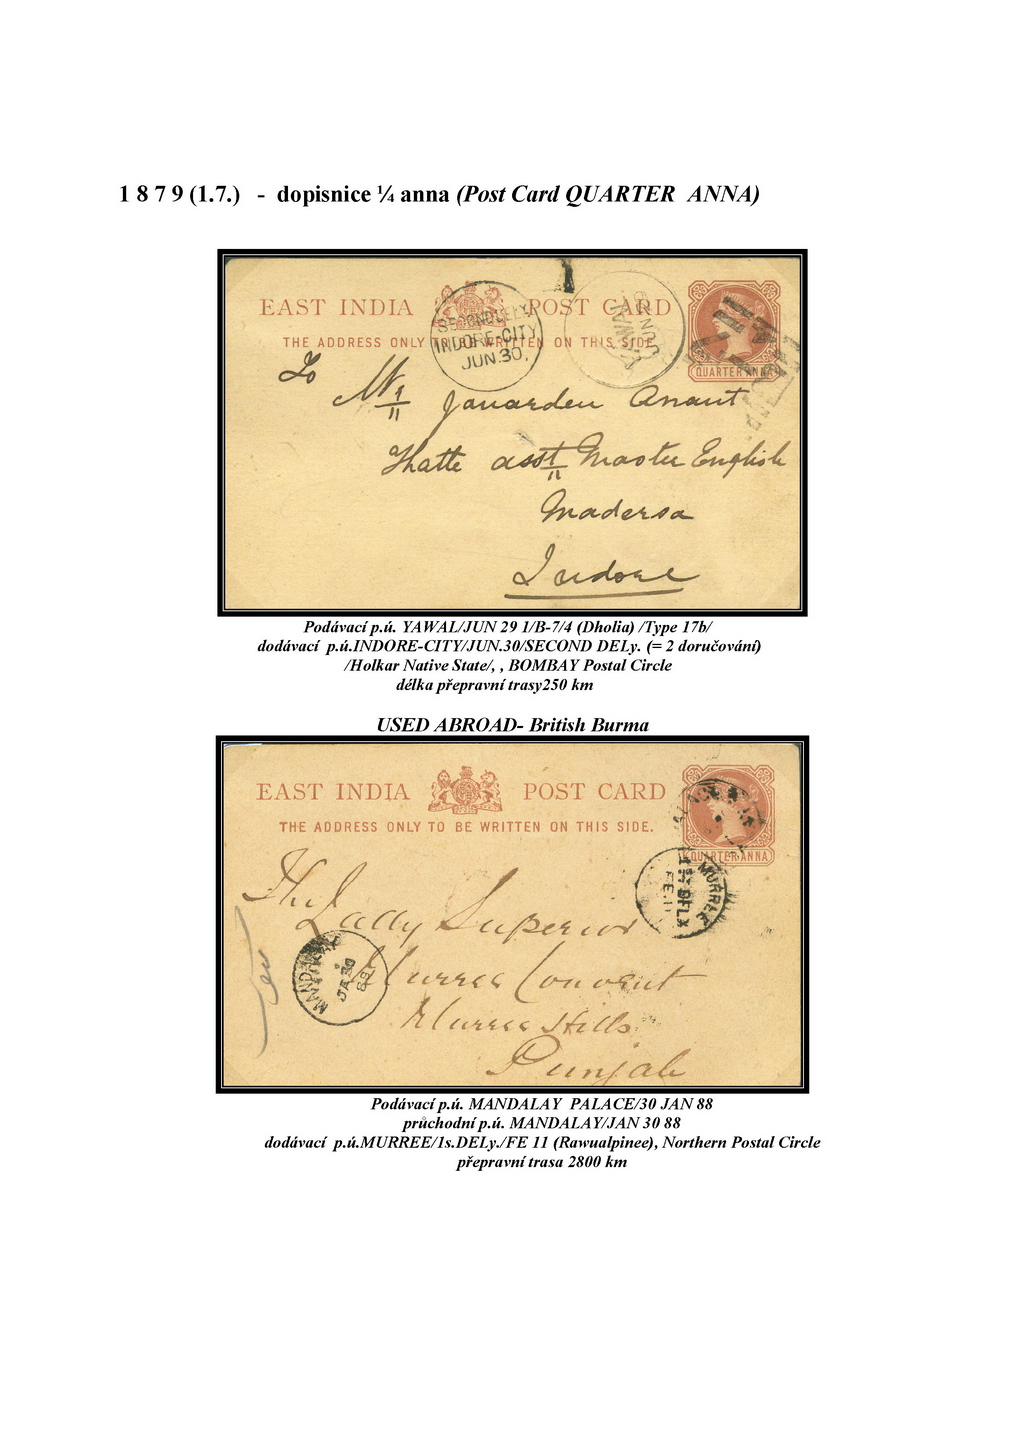 1 8 7 9 (1.7.) - dopisnice ¼ anna (Post Card QUARTER ANNA)
EAST INDIA POST CARD
THE ADDRESS ONLY TO BE WRITTEN ON THIS SIDE.
QUARTER ANNA
SECOND DELY.
INDORE-CITY
JUN.30.
YAWAL
JUN
To
Mr Janarden Anant
Thatte asst Master English
Madersa
Indore
Podávací p.ú. YAWAL/JUN 29 1/B-7/4 (Dholia) /Type 17b/
dodávací p.ú.INDORE-CITY/JUN.30/SECOND DELy. (= 2 doručování)
/Holkar Native State/, , BOMBAY Postal Circle
délka přepravní trasy250 km
USED ABROAD- British Burma
EAST INDIA POST CARD
THE ADDRESS ONLY TO BE WRITTEN ON THIS SIDE.
QUARTER ANNA
MURREE
FE.11
The
Lady Superior
Murree Convent
Murree Hills
Punjab
MANDALAY
JA 30
88
Podávací p.ú. MANDALAY PALACE/30 JAN 88
průchodní p.ú. MANDALAY/JAN 30 88
dodávací p.ú.MURREE/1s.DELy./FE 11 (Rawualpinee), Northern Postal Circle
přepravní trasa 2800 km